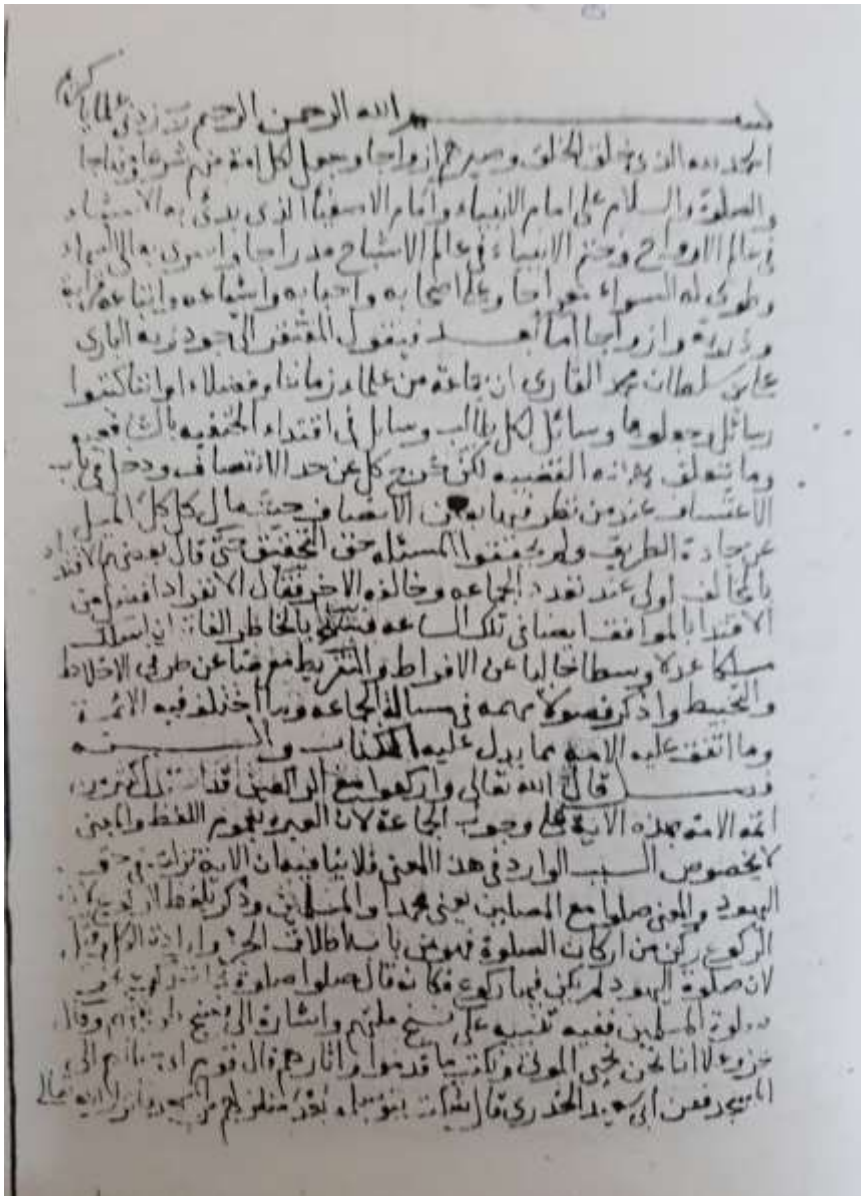 كريم
بسم الله الرحمن الرحيم رب زدني علما يا
الحمد لله الذي خلق الخلق وصيرهم ازواجا وجعل لكل امة منهم شرعا ومنهاجا
والصلوة والسلام على امام الانبياء وامام الاصفيا الذي بدئ به الاشياء
في عالم الارواح وختم الانبياء في عالم الاشباح مدراجا واسرى به الى السماء
وطوى له السواء معراجا وعلى اصحابه واحبابه واشياعه واتباعه قرابة
وذرية وازواجا اما بعد فيقول المفتقر الى جود ربه الباري
علي بن سلطان محمد القاري ان جماعة من علماء زماننا وفضلاء اواننا كتبوا
رسائل وجعلوها وسائل لكل طالب وسايل في اقتداء الحنفيه بالشافعيه
وما يتعلق بهذه القضيه لكن خرج كل عن حد الانتصاف ودخل في باب
الاعتساف عند من نظر فيها بعين الانصاف حيث مال كل كل الميل
عن جادة الطريق ولم يحققوا المسئله حق التحقيق حتى قال بعضهم الاقتداء
بالمخالف اولى عند تعدد الجماعه وخالفه الاخر فقال الانفراد افضل من
الاقتدا بالموافق ايضا في تلك الساعه بالخاطر الفاتر ان اسلك
مسلكا عدلا وسطا خاليا عن الافراط والتفريط معرضا عن طريق الاخلاط
والتخبيط واذكر فصولا مهمه في مسالة الجماعه وما اختلف فيه الائمة
وما اتفق عليه الامه بما يدل عليه الكتاب والسنه
فصل قال الله تعالى واركعوا مع الراكعين قد استدل كثير من
ائمه الامه بهذه الاية على وجوب الجماعة لان العبرة بعموم اللفظ والمعنى
لا بخصوص السبب الوارد في هذا المعنى فلا ينافيه ان الاية نزلت في حق
اليهود والمعنى صلوا مع المصلين يعنى محمدا والمسلمين وذكر بلفظ الركوع لان
الركوع ركن من اركان الصلوة فهو من باب اطلاق الجزء وارادة الكل وقيل
لان صلوة اليهود لم يكن فيها ركوع فكانه قال صلوا صلوة ذات ركوع
صلوة المسلمين ففيه تنبيه على نسخ ملتهم واشارة الى وقال
عز وعلا انا نحن نحيي الموتى ونكتب ما قدموا واثارهم قال قوم اي خطاهم الى
المسجد فعن ابي سعيد الخدري قال شكت بنو سلمة بعد منازلهم من المسجد فانزل الله تعالى